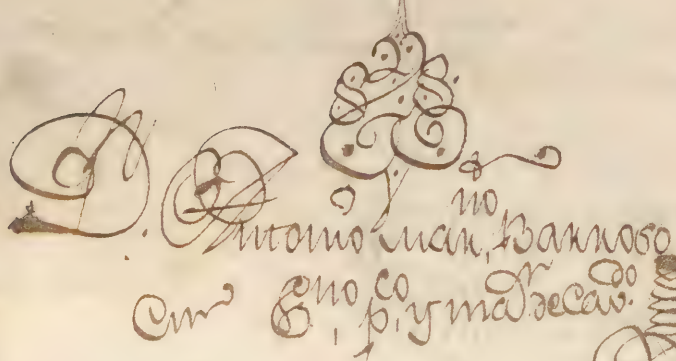 D. Antonio Mar,no Barroso
Cur E,no p,co y mar decavdo.